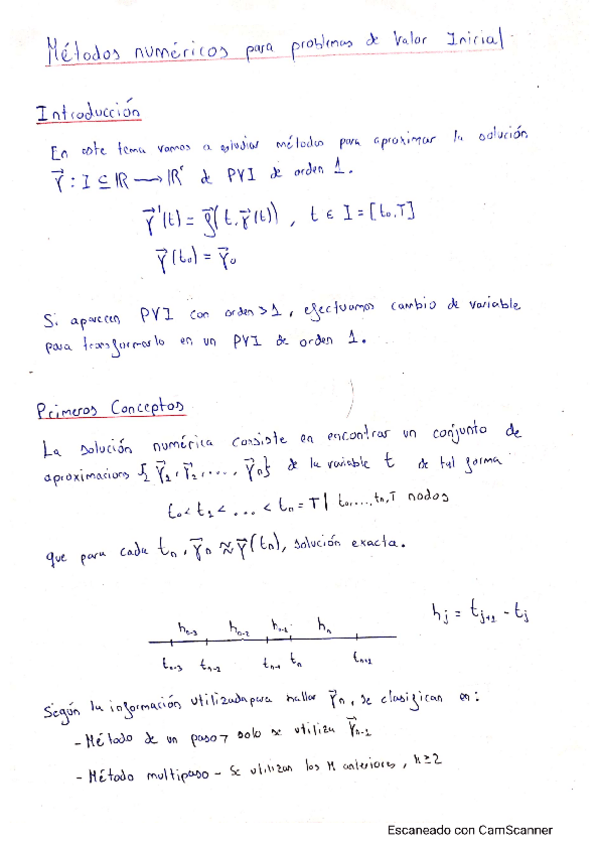 Métodos numéricos para problemas de Valor Inicial
Introducción
En este tema vamos a estudiar métodos para aproximar la solución
γ⃗ : I ⊆ ℝ → ℝʳ de PVI de orden 1.
γ⃗'(t) = f⃗(t, γ⃗(t)) , t ∈ I = [t₀,T]
γ⃗(t₀) = γ⃗₀
Si aparecen PVI con orden > 1, efectuamos cambio de variable
para transformarlo en un PVI de orden 1.
Primeros Conceptos
La solución numérica consiste en encontrar un conjunto de
aproximaciones {γ⃗₁, γ⃗₂, ...., γ⃗n} de la variable t de tal forma
t₀ < t₁ < ... < tn = T | t₀,...,tn,T nodos
que para cada tn, γ⃗n ≈ γ⃗(tn), solución exacta.
hn-3 hn-2 hn-1 hn
hj = tj+1 - tj
tn-3 tn-2 tn-1 tn tn+1
Según la información utilizada para hallar γ⃗n, se clasifican en:
- Método de un paso → solo se utiliza γ⃗n-1
- Método multipaso - Se utilizan los M anteriores, ≥ 2
Escaneado con CamScanner